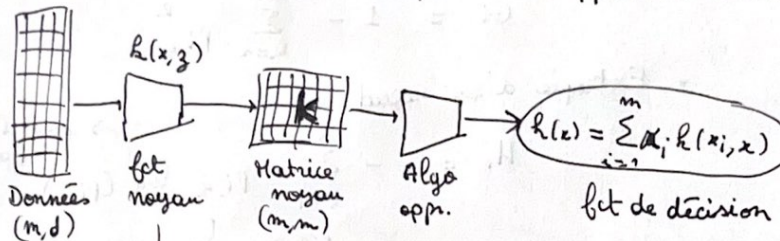 k(x,z)
K
h(x) = Σ_{i=1}^{m} α_i k(x_i, x)
Données
(m,d)
fct
noyau
Matrice
noyau
(m,m)
Algo
appr.
fct de décision